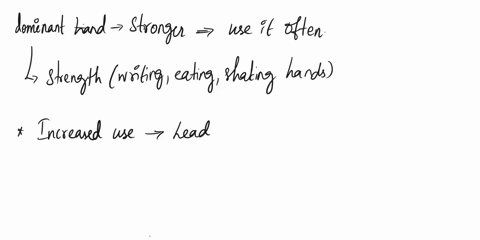 dominant hand → Stronger ⇒ use it often.
↳ Strength (writing, eating, shaking hands)
* Increased use → Lead